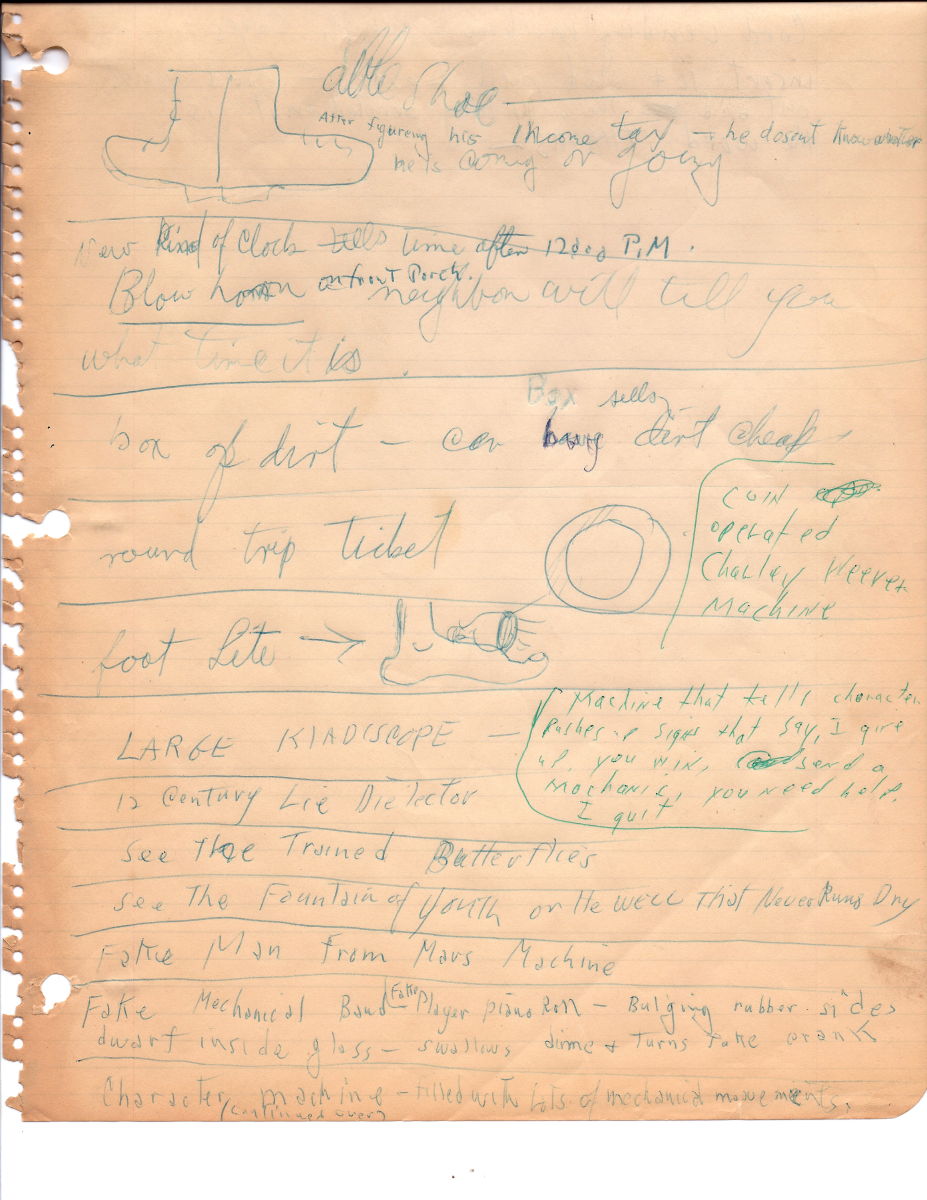 Shoe
After figureing his Income tax - he dosent know whether
he is Coming or Going
New Kind of Clock tells time after 12000 P.M.
Blow horn on front Porch. neighbor will tell you
what time it is.
Box sells
box of dirt - can buy dirt cheap
round trip Ticket
COIN
operated
Charley Weever
MACHINE
foot Lite →
LARGE KIADISCOPE -
Machine that tells character
Pushes up signs that say, I give
up, you win, send a
mechanic, you need help,
I quit
12 Century Lie Dietector
See The Trained Butterflies
see The Fountain of YOUTH or the WELL That Never Runs Dry
Fake Man From Mars Machine
Fake Mechanical Band - Fake Player piano Roll - Bulging rubber sides
dwarf inside glass - swallows dime + Turns fake crank
Character machine - filled with Lots of mechanical movements.
(continued over)